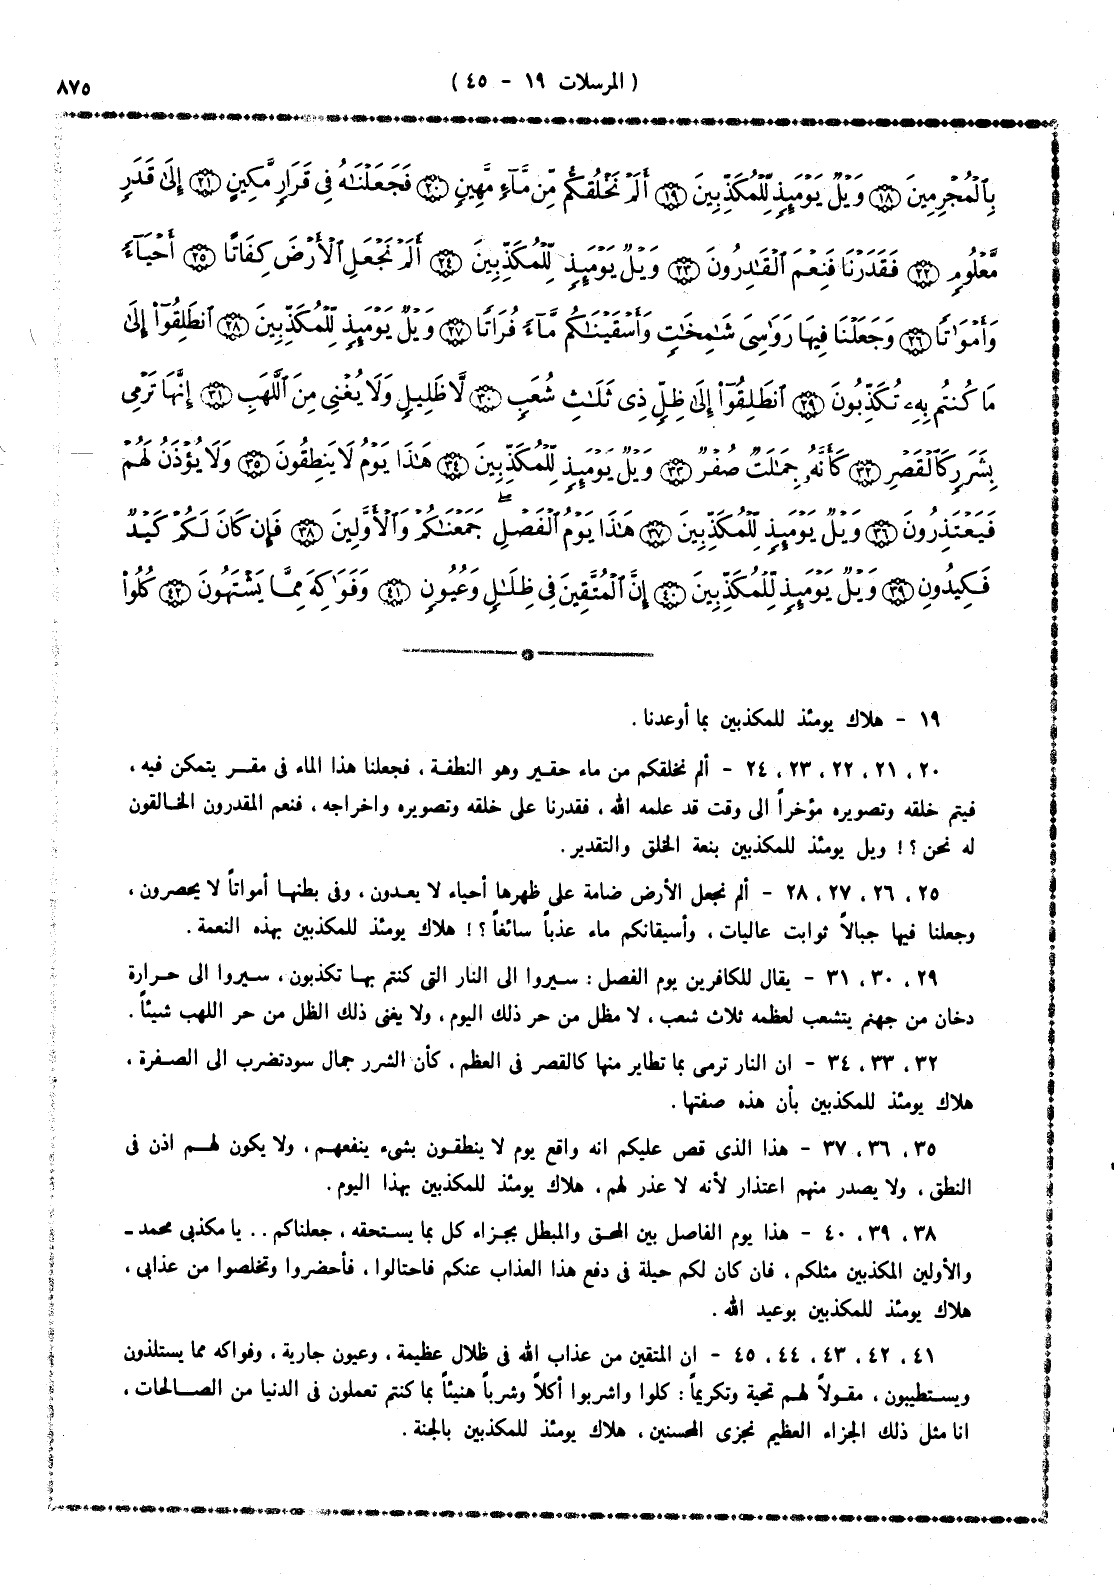 ( المرسلات ١٩ - ٤٥ )
٨٧٥
بِٱلْمُجْرِمِينَ ﴿١٨﴾ وَيْلٌ يَوْمَئِذٍ لِّلْمُكَذِّبِينَ ﴿١٩﴾ أَلَمْ نَخْلُقكُّم مِّن مَّآءٍ مَّهِينٍ ﴿٢٠﴾ فَجَعَلْنَٰهُ فِى قَرَارٍ مَّكِينٍ ﴿٢١﴾ إِلَىٰ قَدَرٍ
مَّعْلُومٍ ﴿٢٢﴾ فَقَدَرْنَا فَنِعْمَ ٱلْقَٰدِرُونَ ﴿٢٣﴾ وَيْلٌ يَوْمَئِذٍ لِّلْمُكَذِّبِينَ ﴿٢٤﴾ أَلَمْ نَجْعَلِ ٱلْأَرْضَ كِفَاتًا ﴿٢٥﴾ أَحْيَآءً
وَأَمْوَٰتًا ﴿٢٦﴾ وَجَعَلْنَا فِيهَا رَوَٰسِىَ شَٰمِخَٰتٍ وَأَسْقَيْنَٰكُم مَّآءً فُرَاتًا ﴿٢٧﴾ وَيْلٌ يَوْمَئِذٍ لِّلْمُكَذِّبِينَ ﴿٢٨﴾ ٱنطَلِقُوٓا۟ إِلَىٰ
مَا كُنتُم بِهِۦ تُكَذِّبُونَ ﴿٢٩﴾ ٱنطَلِقُوٓا۟ إِلَىٰ ظِلٍّ ذِى ثَلَٰثِ شُعَبٍ ﴿٣٠﴾ لَّا ظَلِيلٍ وَلَا يُغْنِى مِنَ ٱللَّهَبِ ﴿٣١﴾ إِنَّهَا تَرْمِى
بِشَرَرٍ كَٱلْقَصْرِ ﴿٣٢﴾ كَأَنَّهُۥ جِمَٰلَتٌ صُفْرٌ ﴿٣٣﴾ وَيْلٌ يَوْمَئِذٍ لِّلْمُكَذِّبِينَ ﴿٣٤﴾ هَٰذَا يَوْمُ لَا يَنطِقُونَ ﴿٣٥﴾ وَلَا يُؤْذَنُ لَهُمْ
فَيَعْتَذِرُونَ ﴿٣٦﴾ وَيْلٌ يَوْمَئِذٍ لِّلْمُكَذِّبِينَ ﴿٣٧﴾ هَٰذَا يَوْمُ ٱلْفَصْلِ ۖ جَمَعْنَٰكُمْ وَٱلْأَوَّلِينَ ﴿٣٨﴾ فَإِن كَانَ لَكُمْ كَيْدٌ
فَكِيدُونِ ﴿٣٩﴾ وَيْلٌ يَوْمَئِذٍ لِّلْمُكَذِّبِينَ ﴿٤٠﴾ إِنَّ ٱلْمُتَّقِينَ فِى ظِلَٰلٍ وَعُيُونٍ ﴿٤١﴾ وَفَوَٰكِهَ مِمَّا يَشْتَهُونَ ﴿٤٢﴾ كُلُوا۟
١٩ - هلاك يومئذ للمكذبين بما أوعدنا .
٢٠ ، ٢١ ، ٢٢ ، ٢٣ ، ٢٤ - ألم نخلقكم من ماء حقير وهو النطفة ، فجعلنا هذا الماء فى مقر يتمكن فيه ،
فيتم خلقه وتصويره مؤخراً الى وقت قد علمه الله ، فقدرنا على خلقه وتصويره واخراجه ، فنعم المقدرون الخالقون
له نحن ؟ ! ويل يومئذ للمكذبين بنعة الخلق والتقدير .
٢٥ ، ٢٦ ، ٢٧ ، ٢٨ - ألم نجعل الأرض ضامة على ظهرها أحياء لا يعدون ، وفى بطنها أمواتاً لا يحصرون ،
وجعلنا فيها جبالاً ثوابت عاليات ، وأسيقانكم ماء عذباً سائغاً ؟ ! هلاك يومئذ للمكذبين بهذه النعمة .
٢٩ ، ٣٠ ، ٣١ - يقال للكافرين يوم الفصل : سيروا الى النار التى كنتم بها تكذبون ، سيروا الى حرارة
دخان من جهنم يتشعب لعظمه ثلاث شعب ، لا مظل من حر ذلك اليوم ، ولا يغنى ذلك الظل من حر اللهب شيئاً .
٣٢ ، ٣٣ ، ٣٤ - ان النار ترمى بما تطاير منها كالقصر فى العظم ، كأن الشرر جمال سودتضرب الى الصفرة ،
هلاك يومئذ للمكذبين بأن هذه صفتها .
٣٥ ، ٣٦ ، ٣٧ - هذا الذى قص عليكم انه واقع يوم لا ينطقون بشىء ينفعهم ، ولا يكون لهم اذن فى
النطق ، ولا يصدر منهم اعتذار لأنه لا عذر لهم ، هلاك يومئذ للمكذبين بهذا اليوم .
٣٨ ، ٣٩ ، ٤٠ - هذا يوم الفاصل بين المحق والمبطل بجزاء كل بما يستحقه ، جعلناكم . . يا مكذبى محمد ـ
والأولين المكذبين مثلكم ، فان كان لكم حيلة فى دفع هذا العذاب عنكم فاحتالوا ، فأحضروا وتخلصوا من عذابى ،
هلاك يومئذ للمكذبين بوعيد الله .
٤١ ، ٤٢ ، ٤٣ ، ٤٤ ، ٤٥ - ان المتقين من عذاب الله فى ظلال عظيمة ، وعيون جارية ، وفواكه مما يستلذون
ويستطيبون ، مقولاً لهم تحية وتكريماً : كلوا واشربوا أكلاً وشرباً هنيئاً بما كنتم تعملون فى الدنيا من الصالحات ،
انا مثل ذلك الجزاء العظيم نجزى المحسنين ، هلاك يومئذ للمكذبين بالجنة .